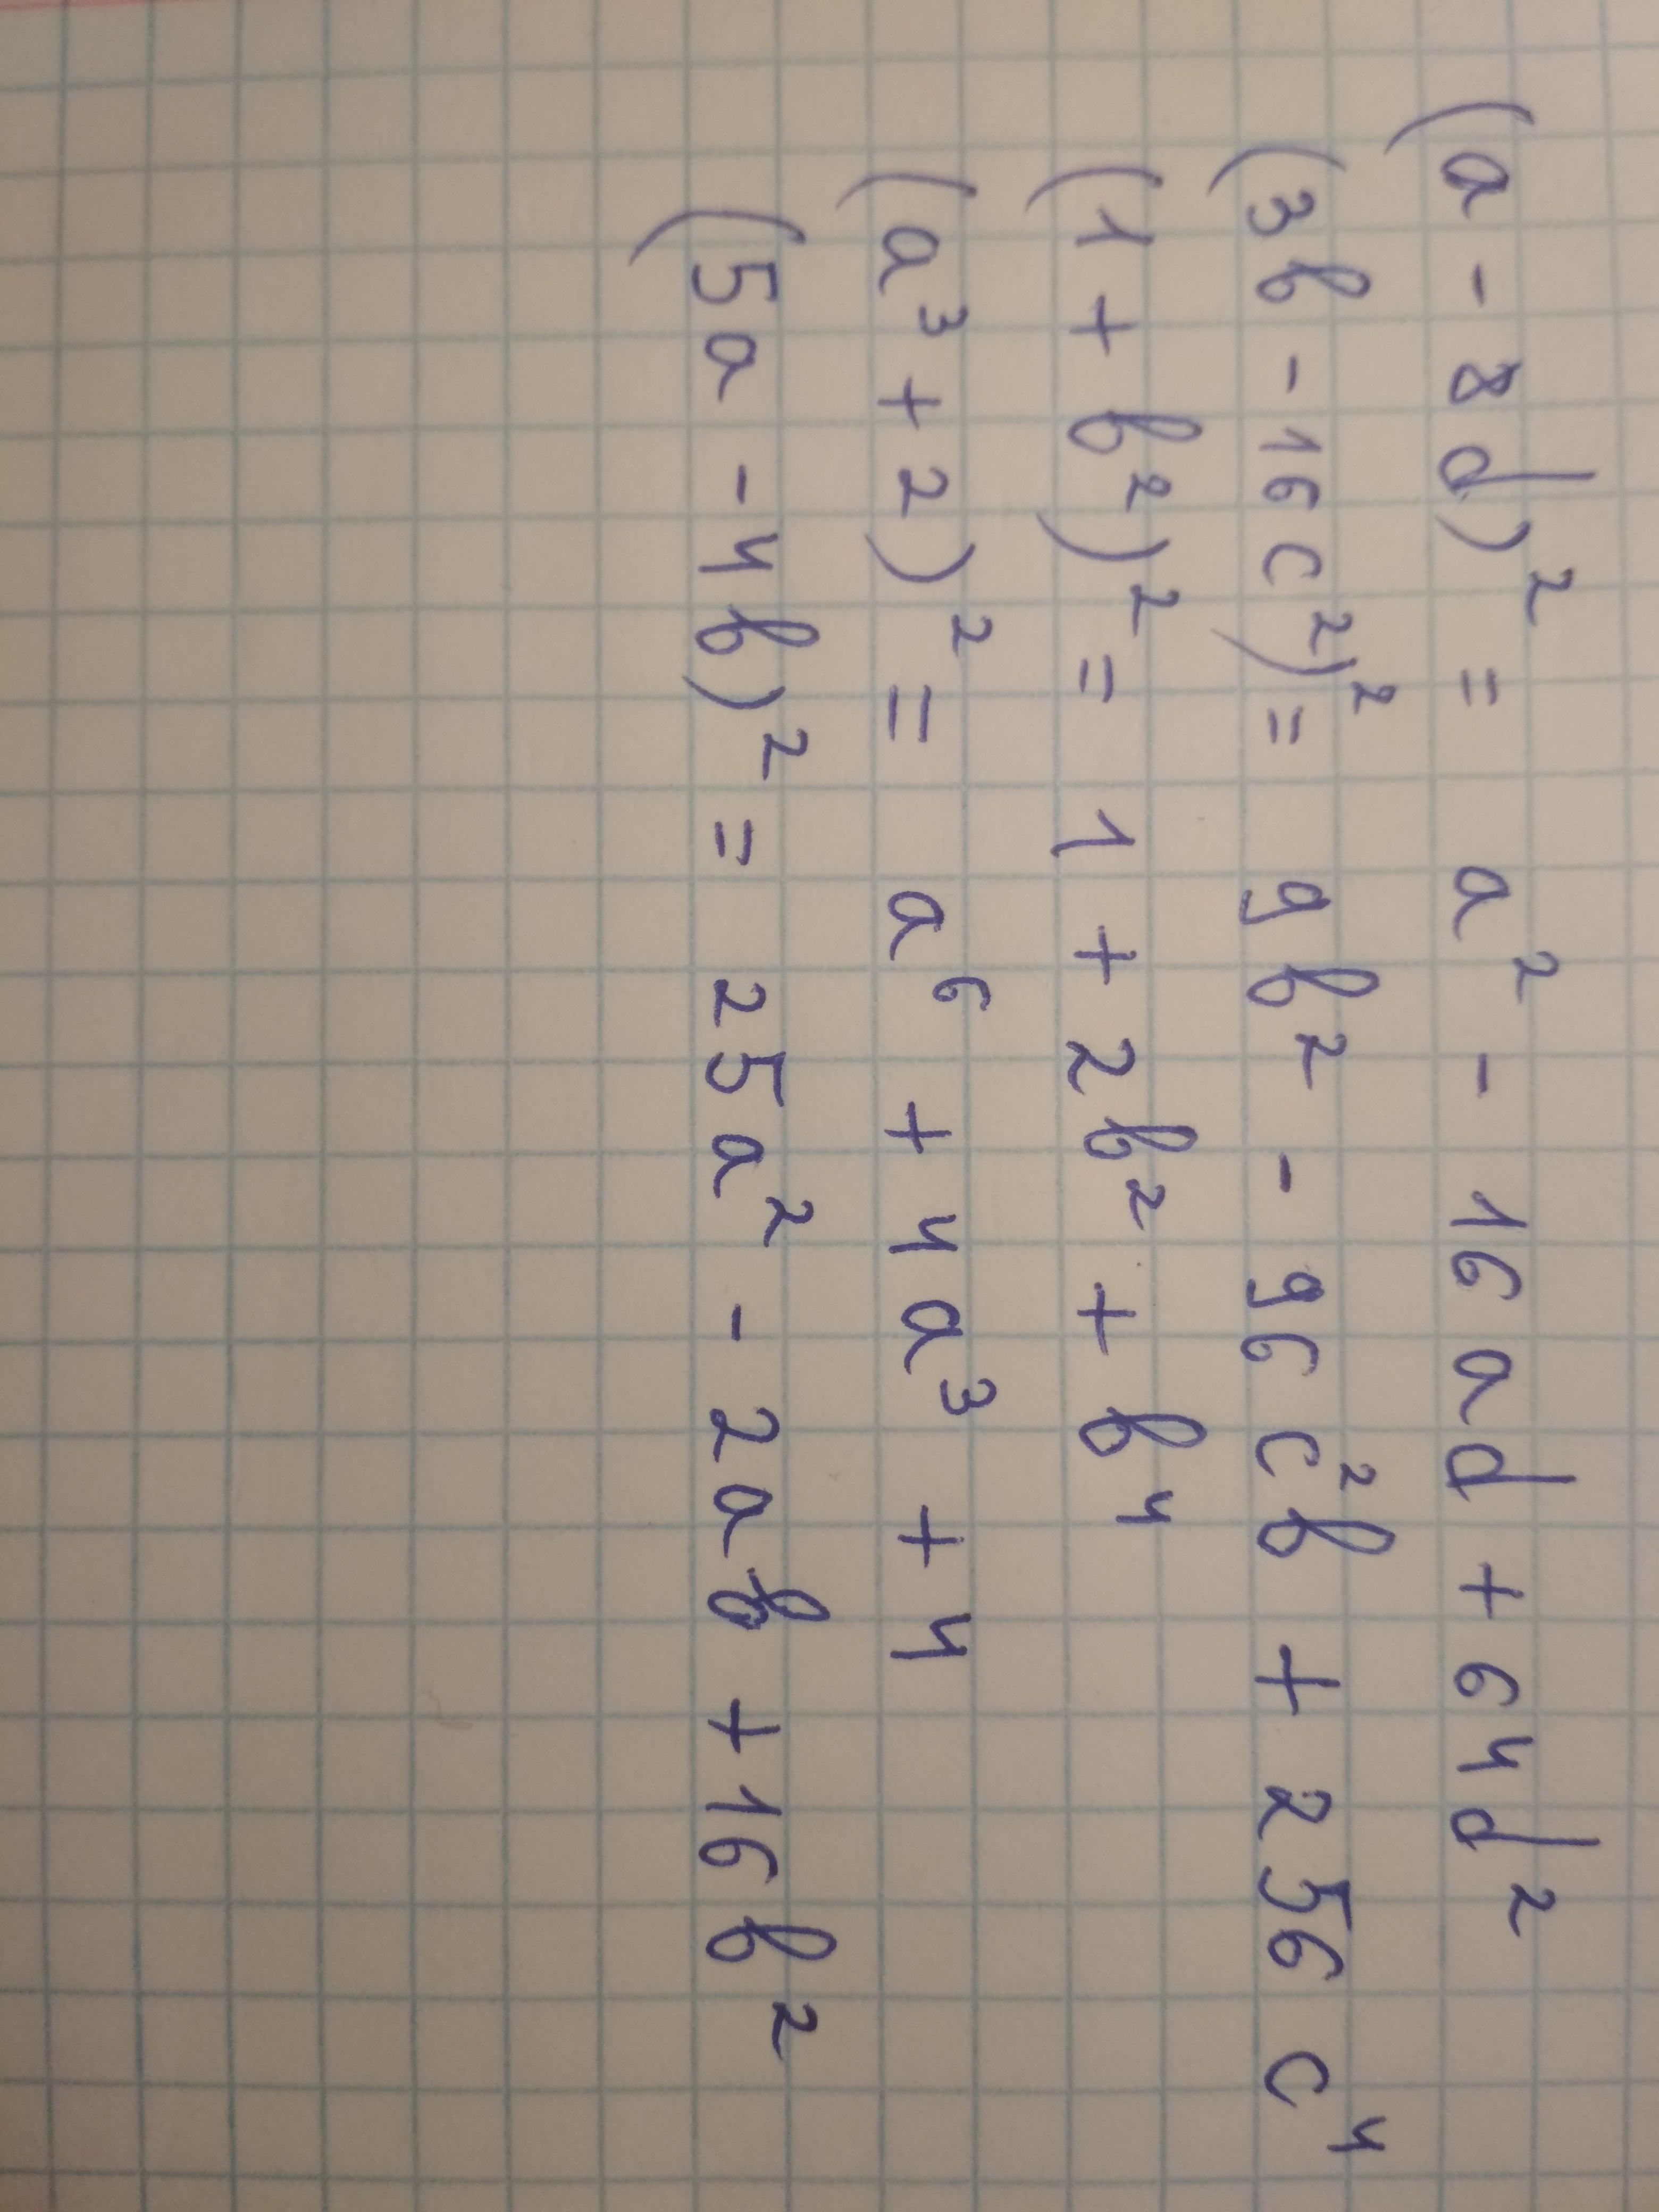 (a - 8d)² = a² - 16ad + 64d²
(3b - 16c²)² = 9b² - 96c²b + 256c⁴
(1 + b²)² = 1 + 2b² + b⁴
(a³ + 2)² = a⁶ + 4a³ + 4
(5a - 4b)² = 25a² - 2ab + 16b²